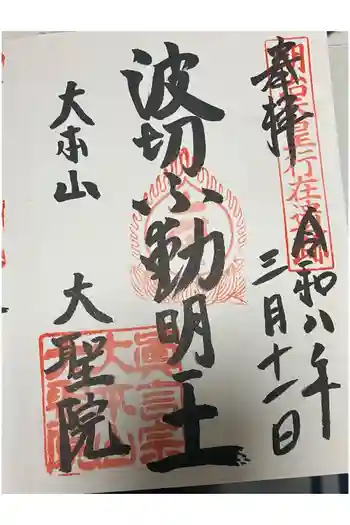 奉拝
明治天皇行在遺跡
令和八年
三月十一日
波切不動明王
大本山
大聖院
真言宗
大本山
大聖院